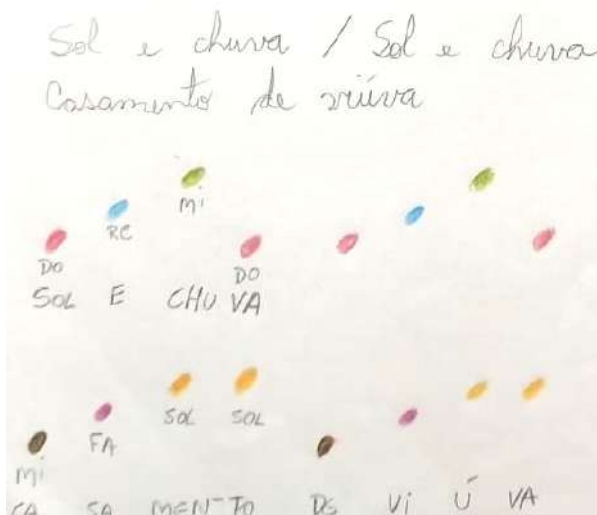 Sol e chuva / Sol e chuva
Casamento de viúva
MI
RE
DO DO
SOL E CHU VA
SOL SOL
FA
MI
CA SA MEN TO DE VI Ú VA